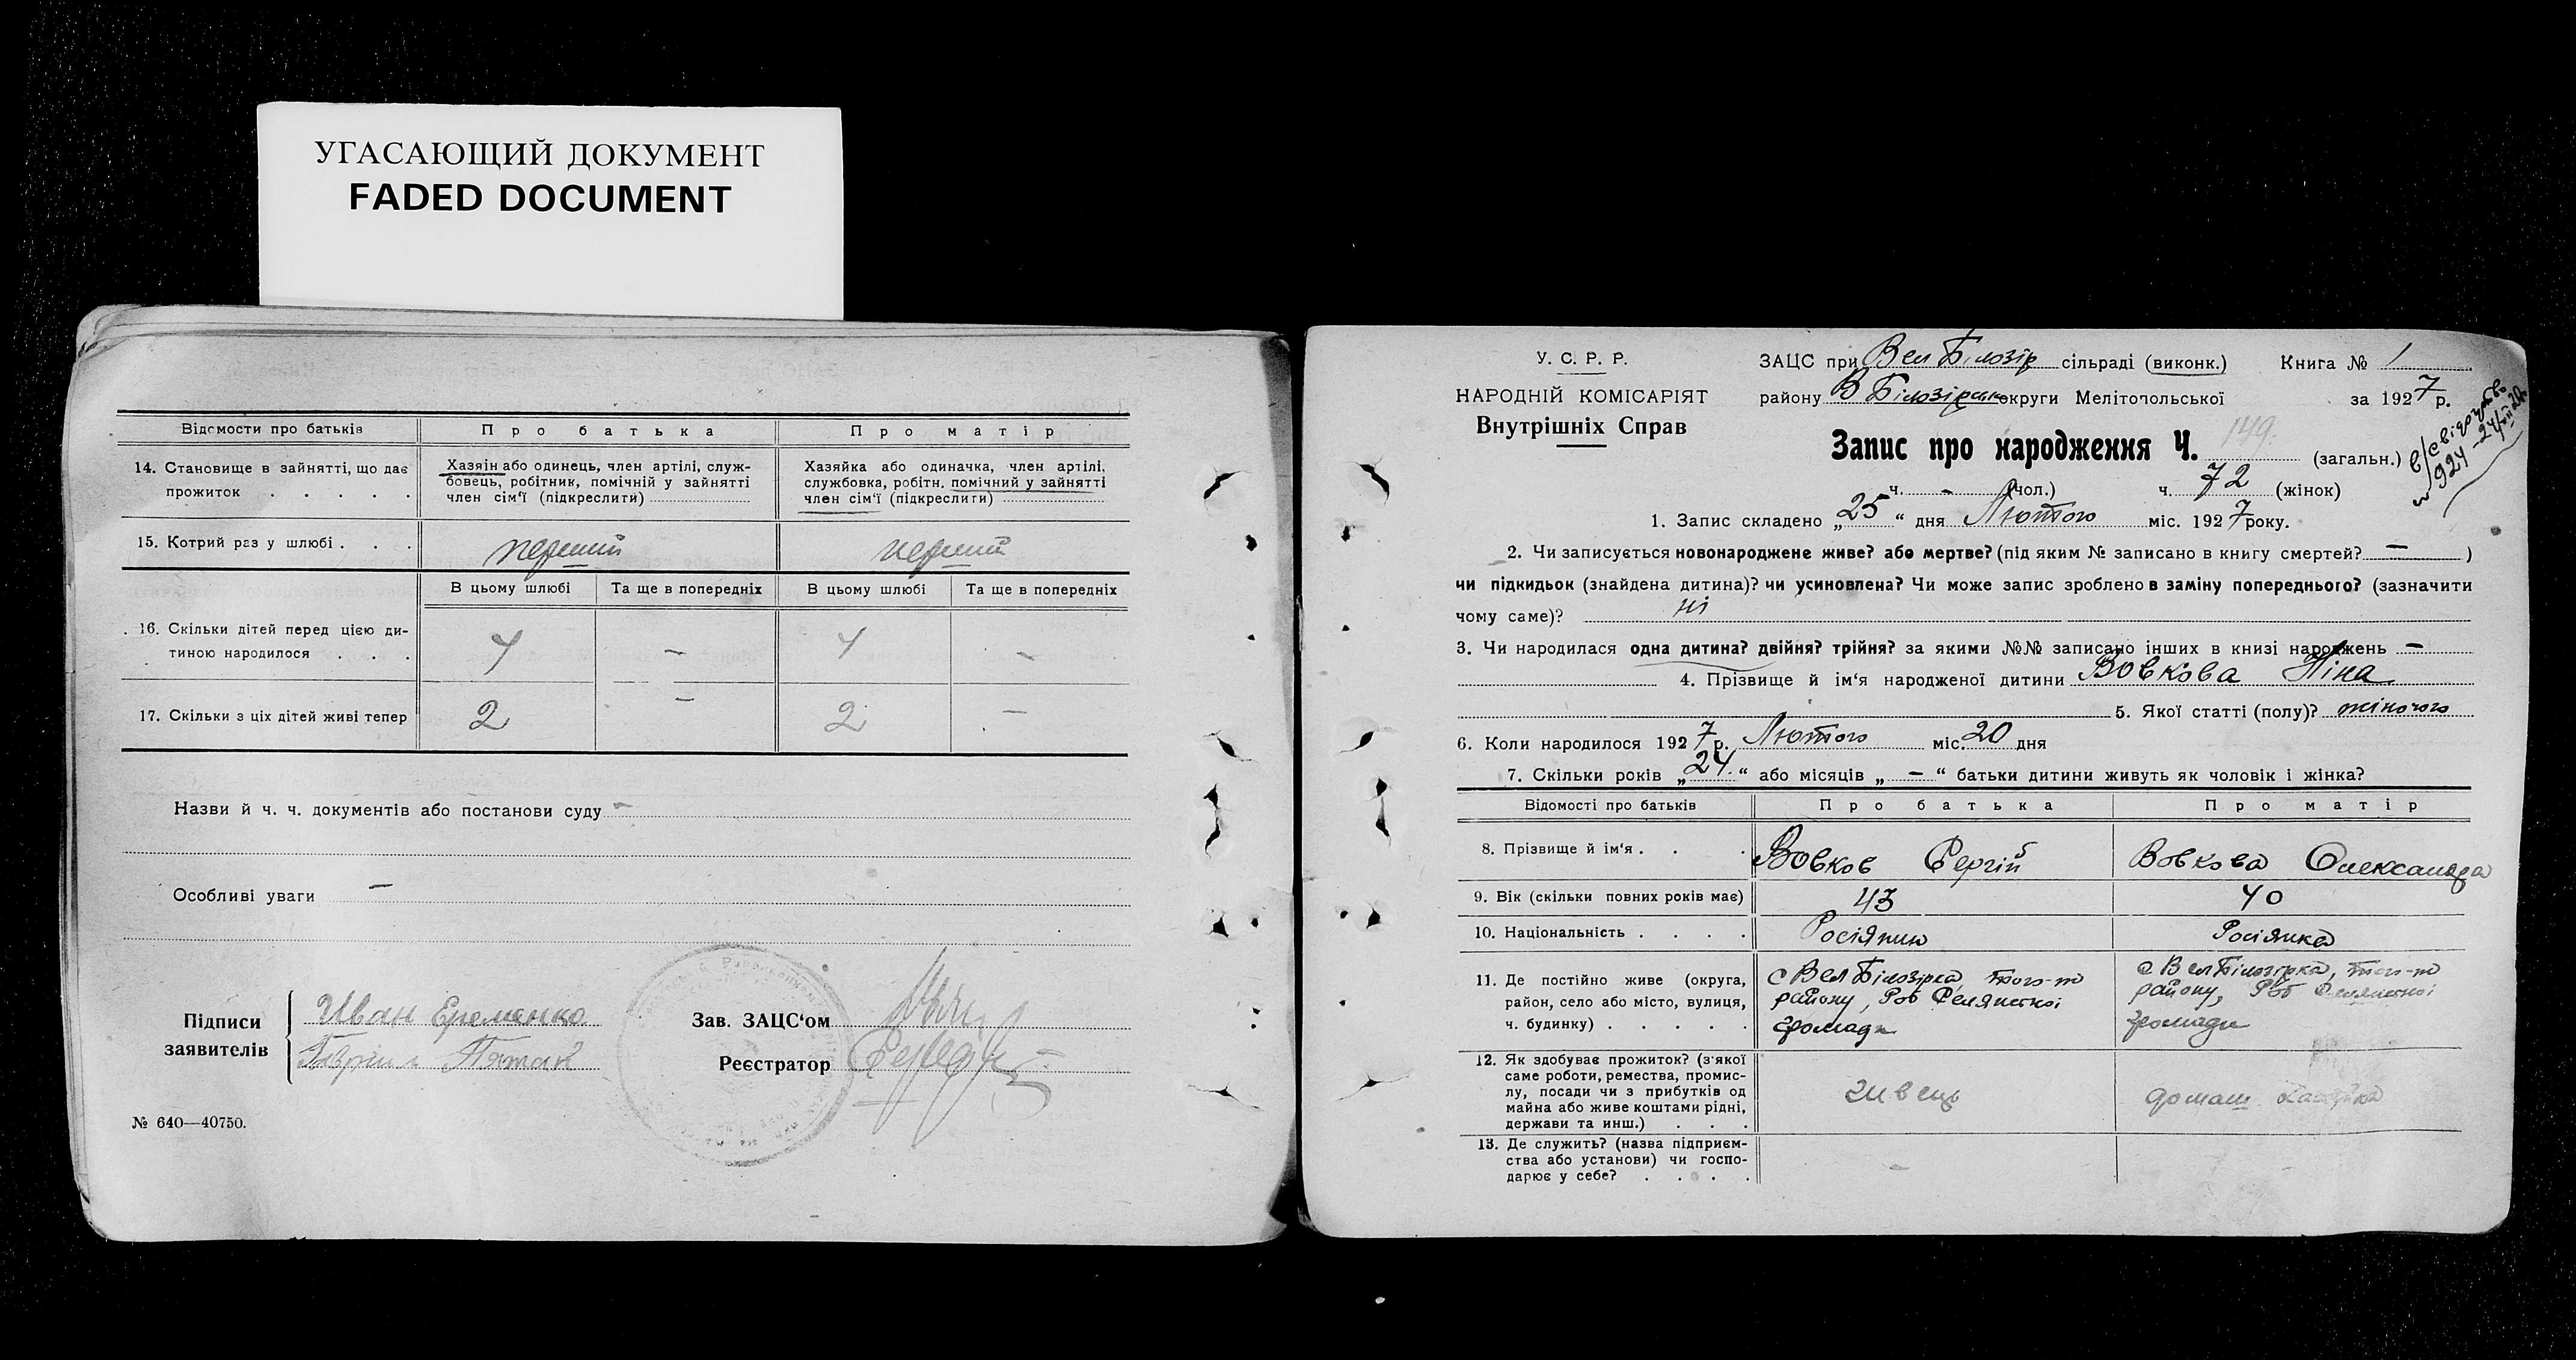 УГАСАЮЩИЙ ДОКУМЕНТ
FADED DOCUMENT
Відомости про батьків
Про батька
Про матір
14. Становище в зайнятті, що дає
прожиток . . . . .
Хазяїн або одинець, член артілі, служ-
бовець, робітник, помічній у зайнятті
член сім'ї (підкреслити)
Хазяйка або одиначка, член артілі,
службовка, робітн. помічний у зайнятті
член сім'ї (підкреслити)
15. Котрий раз у шлюбі . . .
перший
перший
В цьому шлюбі
Та ще в попередніх
В цьому шлюбі
Та ще в попередніх
16. Скільки дітей перед цією ди-
тиною народилося . . .
4 — 4 —
17. Скільки з ціх дітей живі тепер
2 — 2 —
Назви й ч. ч. документів або постанови суду —
Особливі уваги —
Підписи
заявителів
Иван Еременко
Гаврил Пятак
Зав. ЗАЦС'ом
Реєстратор
№ 640—40750.
У. С. Р. Р.
НАРОДНІЙ КОМІСАРІЯТ
Внутрішніх Справ
ЗАЦС при Вел Білозір сільраді (виконк.) Книга № 1
району В Білозірськ округи Мелітопольської за 1927 р.
Запис про народження Ч. 149 (загальн.)
ч. - (чол.) ч. 72 (жінок)
в/свідоцтво
№ 924 — 24/VII 20р
1. Запис складено „25“ дня Лютого міс. 1927 року.
2. Чи записується новонароджене живе? або мертве? (під яким № записано в книгу смертей? — )
чи підкидьок (знайдена дитина)? чи усиновлена? Чи може запис зроблено в заміну попереднього? (зазначити
чому саме)? ні
3. Чи народилася одна дитина? двійня? трійня? за якими №№ записано інших в книзі народжень —
4. Прізвище й ім'я народженої дитини Вовкова Ніна
5. Якої статті (полу)? жіночого
6. Коли народилося 1927 р. Лютого міс. 20 дня
7. Скільки років „24.“ або місяців „ — “ батьки дитини живуть як чоловік і жінка?
Відомості про батьків
Про батька
Про матір
8. Прізвище й ім'я . . .
Вовков Сергій
Вовкова Олександра
9. Вік (скільки повних років має)
43
40
10. Національність . . . .
Росіянин
Росіянка
11. Де постійно живе (округа,
район, село або місто, вулиця,
ч. будинку) . . . . .
с Вел Білозірка, того-ж
району, Роб Селянської
громади
с Вел Білозірка, того-ж
району, Роб Селянської
громади
12. Як здобуває прожиток? (з'якої
саме роботи, ремества, промис-
лу, посади чи з прибутків од
майна або живе коштами рідні,
держави та инш.) . . .
домаш хазяйка
13. Де служить? (назва підприєм-
ства або установи) чи госпо-
дарює у себе? . . . .
—